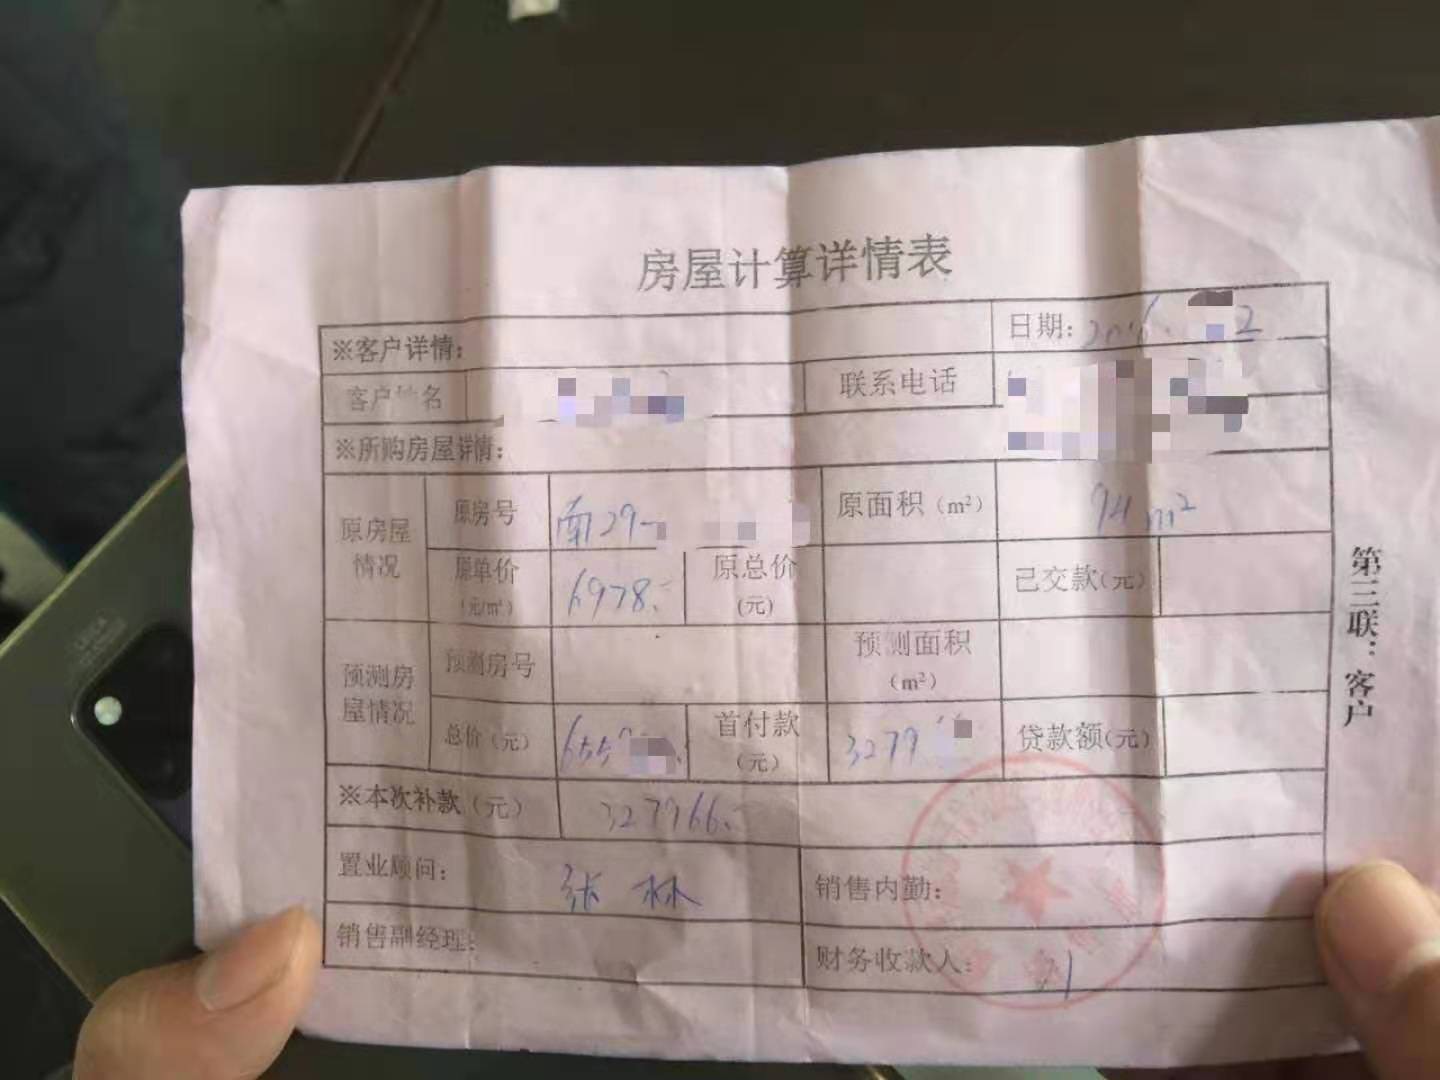 房屋计算详情表
※客户详情：
日期：
客户姓名
联系电话
※所购房屋详情：
原房屋情况
原房号
南29-
原面积（m²）
94m²
原单价（元/m²）
6978.
原总价（元）
已交款（元）
预测房屋情况
预测房号
预测面积（m²）
总价（元）
首付款（元）
3279
贷款额（元）
※本次补款（元）
327966.
置业顾问：
张林
销售内勤：
销售副经理：
财务收款人：
第三联：客户
LEICA